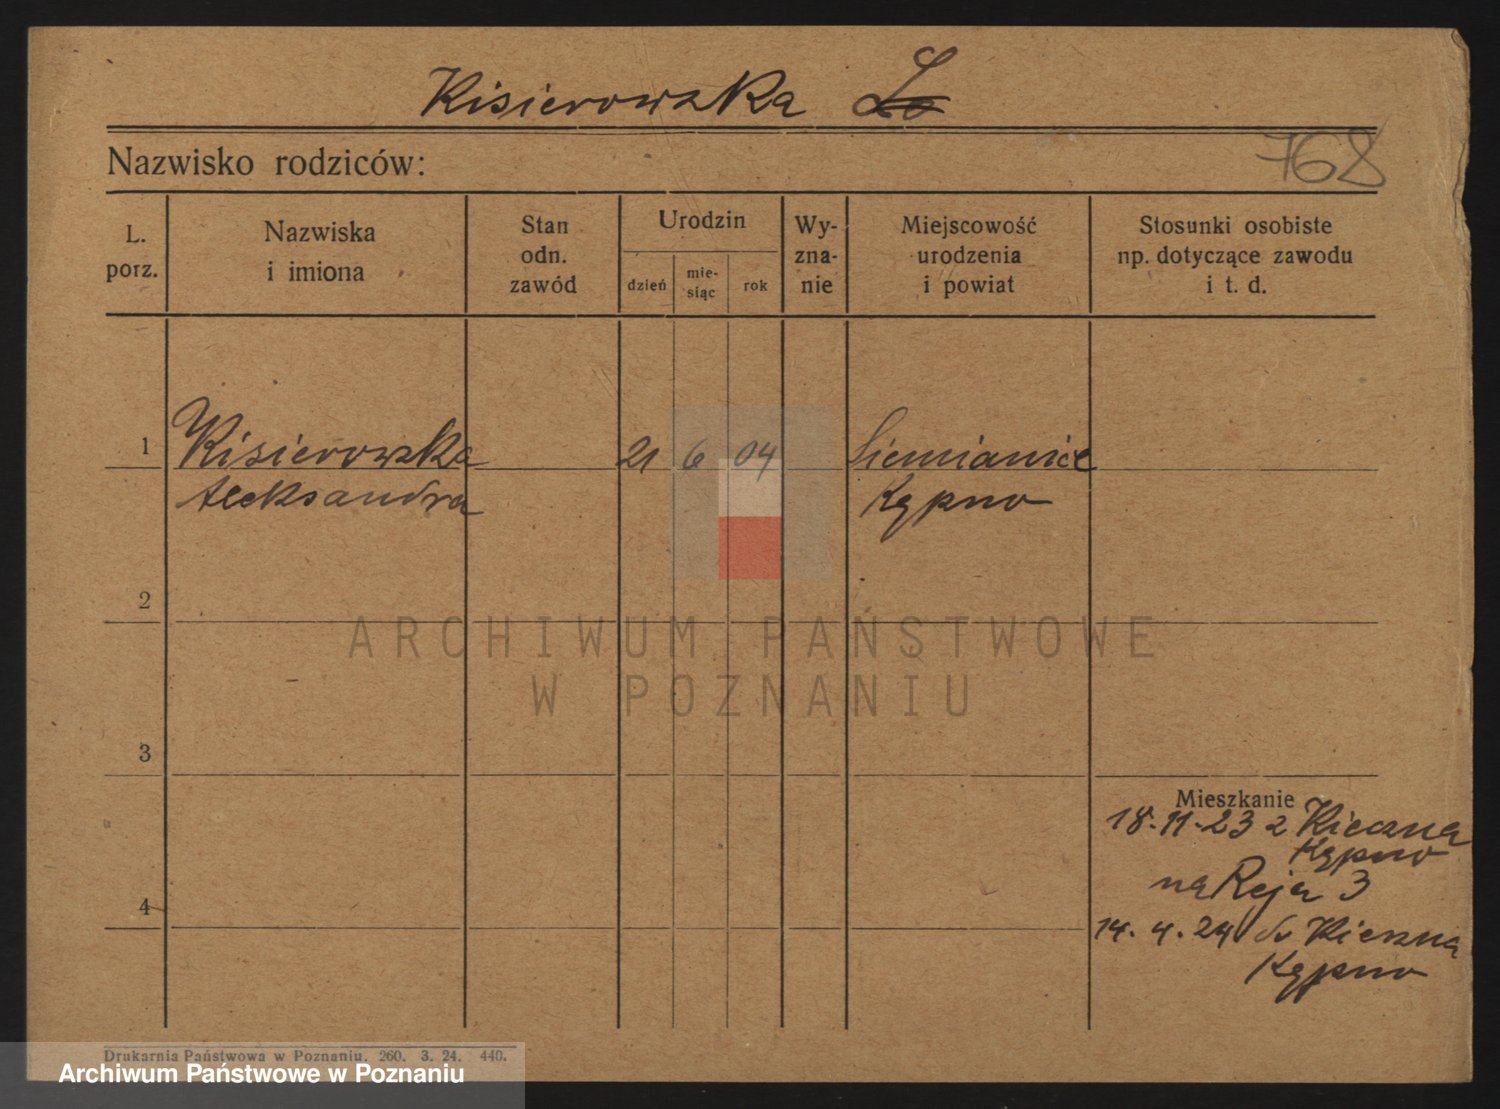 Kisierowska
Nazwisko rodziców:
768
L.
porz.
Nazwiska
i imiona
Stan
odn.
zawód
Urodzin
dzień
mie-
siąc
rok
Wy-
zna-
nie
Miejscowość
urodzenia
i powiat
Stosunki osobiste
np. dotyczące zawodu
i t. d.
1
Kisierowska
Aleksandra
21 6 04
Siemianice
Kępno
2
ARCHIWUM PAŃSTWOWE
W POZNANIU
3
Mieszkanie
18.11.23 z Kierzna
Kępno
na Reja 3
4
14.4.24 do Kierzna
Kępno
Drukarnia Państwowa w Poznaniu. 260. 3. 24. 440.
Archiwum Państwowe w Poznaniu